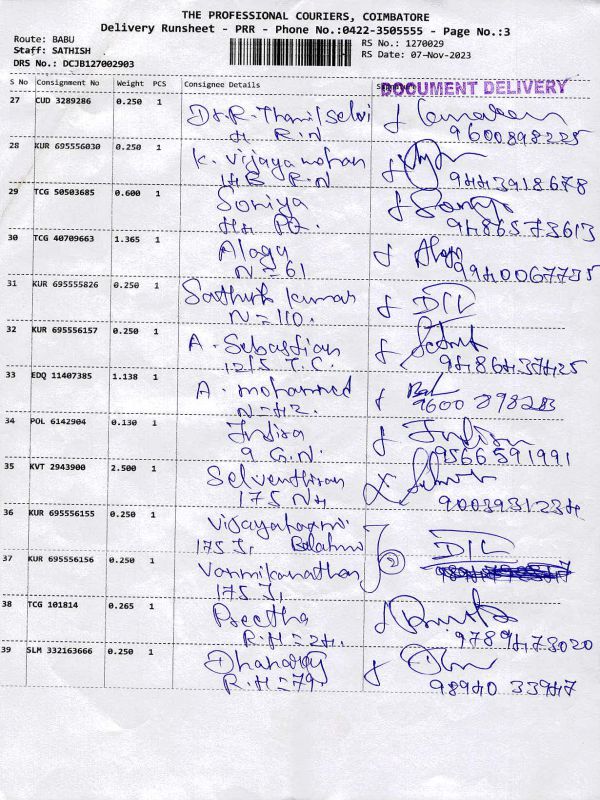 THE PROFESSIONAL COURIERS, COIMBATORE
Delivery Runsheet - PRR - Phone No.:0422-3505555 - Page No.:3
Route: BABU
Staff: SATHISH
DRS No.: DCJB127002903
RS No.: 1270029
RS Date: 07-Nov-2023
S No Consignment No Weight PCS Consignee Details
DOCUMENT DELIVERY
27 CUD 3289286 0.250 1 Dr.R. Thamil selvi
R.N 9600898225
28 KUR 695556030 0.250 1 K. Vijaya mohan
R.N 9443918678
29 TCG 50503685 0.600 1 Soniya
9486573613
30 TCG 40709663 1.365 1 Alagu Alagu
N = 61 9940067735
31 KUR 695555826 0.250 1 Sathish kumar D12
N = 110.
32 KUR 695556157 0.250 1 A. Sebastian
12/5 T.C. 9486437425
33 EDQ 11407385 1.138 1 A. mohammed
N = 42. 9600898283
34 POL 6142904 0.130 1 Indira Indira
9 G.N. 9566591991
35 KVT 2943900 2.500 1 Selventhiran
175 N4 9003931234
36 KUR 695556155 0.250 1 Vijayalaxmi
175 J,
37 KUR 695556156 0.250 1
175 J,
38 TCG 101814 0.265 1 Preetha
R.H = 24. 9789473020
39 SLM 332163666 0.250 1 Dhanaraj
R.H = 79. 98940 33947